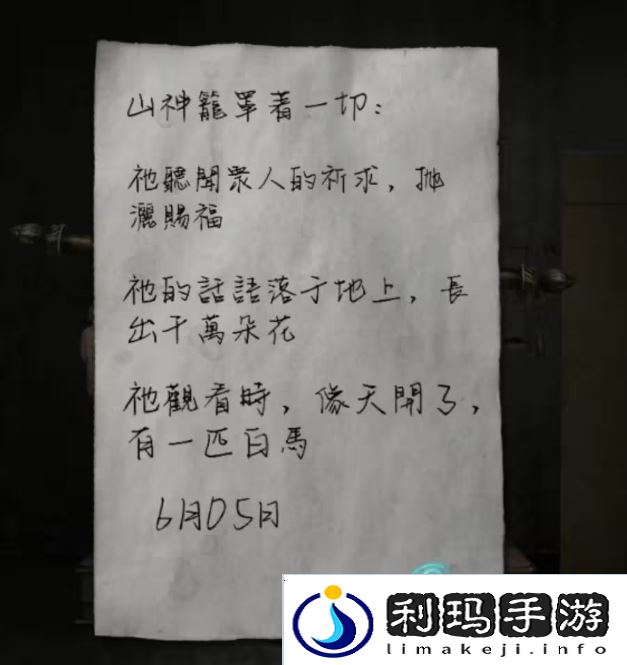 山神籠罩着一切：
祂聽聞眾人的祈求，拋
灑賜福
祂的話語落于地上，長
出千萬朵花
祂觀看時，像天開了，
有一匹白馬
6月05日
利玛手游
limakeji.info